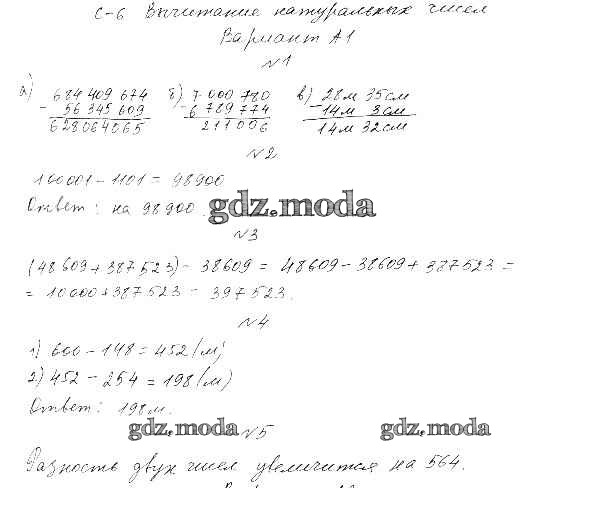 С-6 Вычитание натуральных чисел
Вариант А1
№1
а) 684 409 674 б) 7 000 780 в) 28м 35см
- 56 345 609 - 6 789 774 - 14м 3см
628064065 211006 14м 32см
№2
100001 - 1101 = 98900
Ответ: на 98900.
gdz.moda
№3
(48609 + 387523) - 38609 = 48609 - 38609 + 387523 =
= 10000 + 387523 = 397523.
№4
1) 600 - 148 = 452 (м)
2) 452 - 254 = 198 (м)
Ответ: 198м.
gdz.moda №5 gdz.moda
Разность двух чисел увеличится на 564.